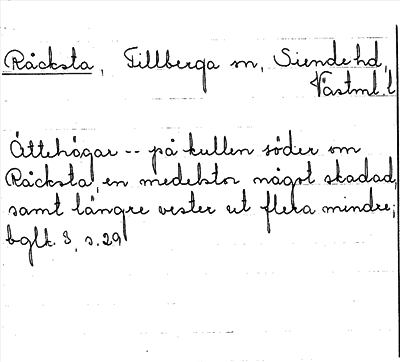 Råcksta, Tillberga sn, Siende hd,
Västml. l
Ättehögar -- på kullen söder om
Råcksta, en medelstor något skadad,
samt längre vester ut flera mindre;
bglt. 3, s. 29